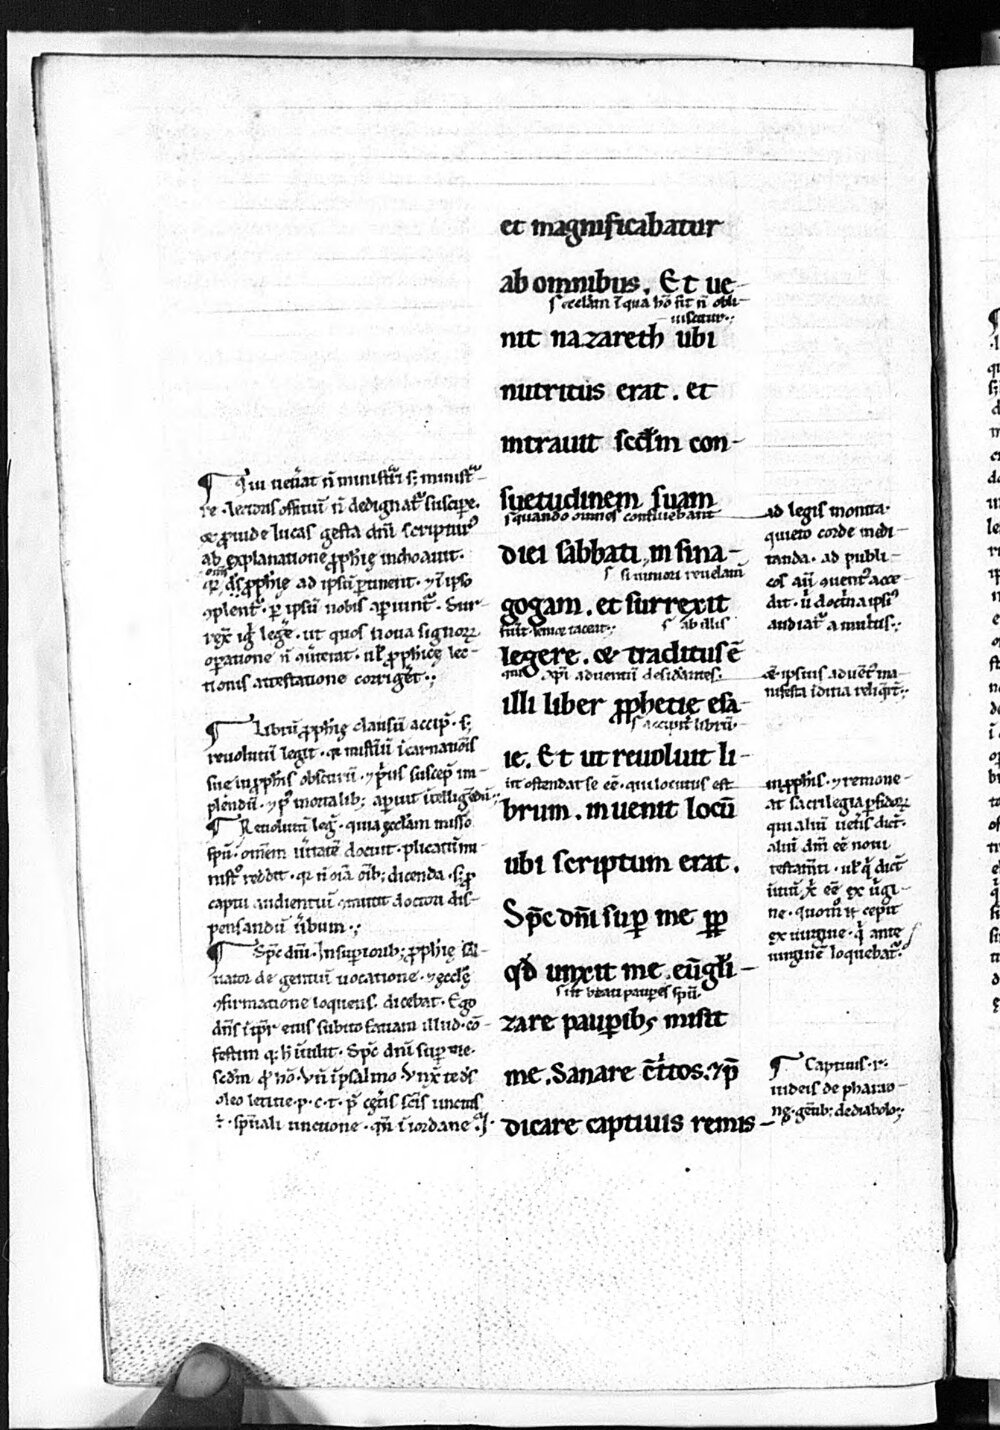 et magnificabatur
ab omnibus. Et ue-
s. eccl̄am ī qua hō fit n̄ obli-
uiscitur:;
nit nazareth ubi
nutritus erat. et
intrauit scd̄m con-
suetudinem suam
s. quando omnes confluebant
diei sabbati, in sina-
s. si minori reuelatū
gogam. et surrexit
fuīt senior taceat:; s. ab illis
legere. & traditus ē
qui xp̄i aduentū desidāntes.
illi liber ꝓphetie esa-
s. accipit librū.
ie. Et ut reuoluit li-
ut ostendat se eē. qui locutus est
brum. inuenit locū
ubi scriptum erat.
Spc̄ dn̄i sup̄ me pp̄
qd̄ unxit me. euḡli-
s. ut beati paup̄es spū.
zare paup̄ib; misit
me. Sanare c̄t̄itos. ⁊ p̄
dicare captiuis remis-
¶ Qui uen̄at n̄ ministr̄i s; ministr̄a-
re. lectoris officiū n̄ dedignat̄ suscipe.
& ꝓinde lucas gesta dn̄i scripturꝰ
ab explanatione ꝓph̄ię inchoauit.
om̄s
qr̄ ꝓph̄ię ad ipsū ptinent. ⁊ ī ipso
ꝯplent̄. p̄ ipsū nobis apiunt̄. Sur-
rex̄ iḡ leḡe. ut quos noua signoꝝ
opatione n̄ ꝯuerterat. ul̄ ꝓph̄icę lec-
tionis attestatione corriḡet:;
¶ Librū ꝓph̄ię clausū accip̄. s;
reuolutū legit. qr̄ misteriū īcarnationis
sue in ꝓph̄is obscurū. ⁊ p̄us suscep̄ im-
plendū. ⁊ pꝰ mortalib; apuit ītelligendū:;
¶ Reuolutū leḡ. quia ęccl̄am misso
spū. omnem ūitatē docuit. plicatū mi-
nistrꝰ reddit. qr̄ n̄ oīa oīb; dicenda. s; ꝓ
captu audientiū ⁊mittit doctori dis-
pensandū ūbum:;
¶ Spc̄ dn̄i. In supiorib; ꝓph̄ię sal-
uator de gentiū uocatione. ⁊ ęccl̄ę
ꝯfirmatione loquens. dicebat. Ego
dn̄s ī tp̄r eius subito faciam illud. cō-
festim q; h̄ ītulit. Spc̄ dn̄i sup̄ me.
scd̄m qd̄ hō. Vn̄ ī psalmo. Vnx̄ te d̄s
oleo letitie. p. c. t. p̄ cet̄is scīs unctus
ē. spūali unctione. qn̄ ī iordane
ad legis monita.
quieto corde medi-
tanda. ad publi-
cos au̅ ꝯuentꝰ acce-
dit. ū doctrina ipsiꝰ
audiat̄ a multis:;
& ipsius aduent̄ ma-
nifesta indicia reliq̄rt̄:;
in ꝓph̄is. ⁊ remoue-
at sacrilegia pfidoꝝ
qui aliū uet̄is dic̄t.
aliū dm̄ eē noui
testam̄ti. ul̄ q̄ dic̄t
initiū x̄ eē ex uīgi-
ne. quom̄ n̄ cepit
ex uirgine. q̄ ante
uirginē loquebat̄.
¶ Captiuis. i.
iudeis de pharao-
ne. gēt̄ib; de diabolo:;